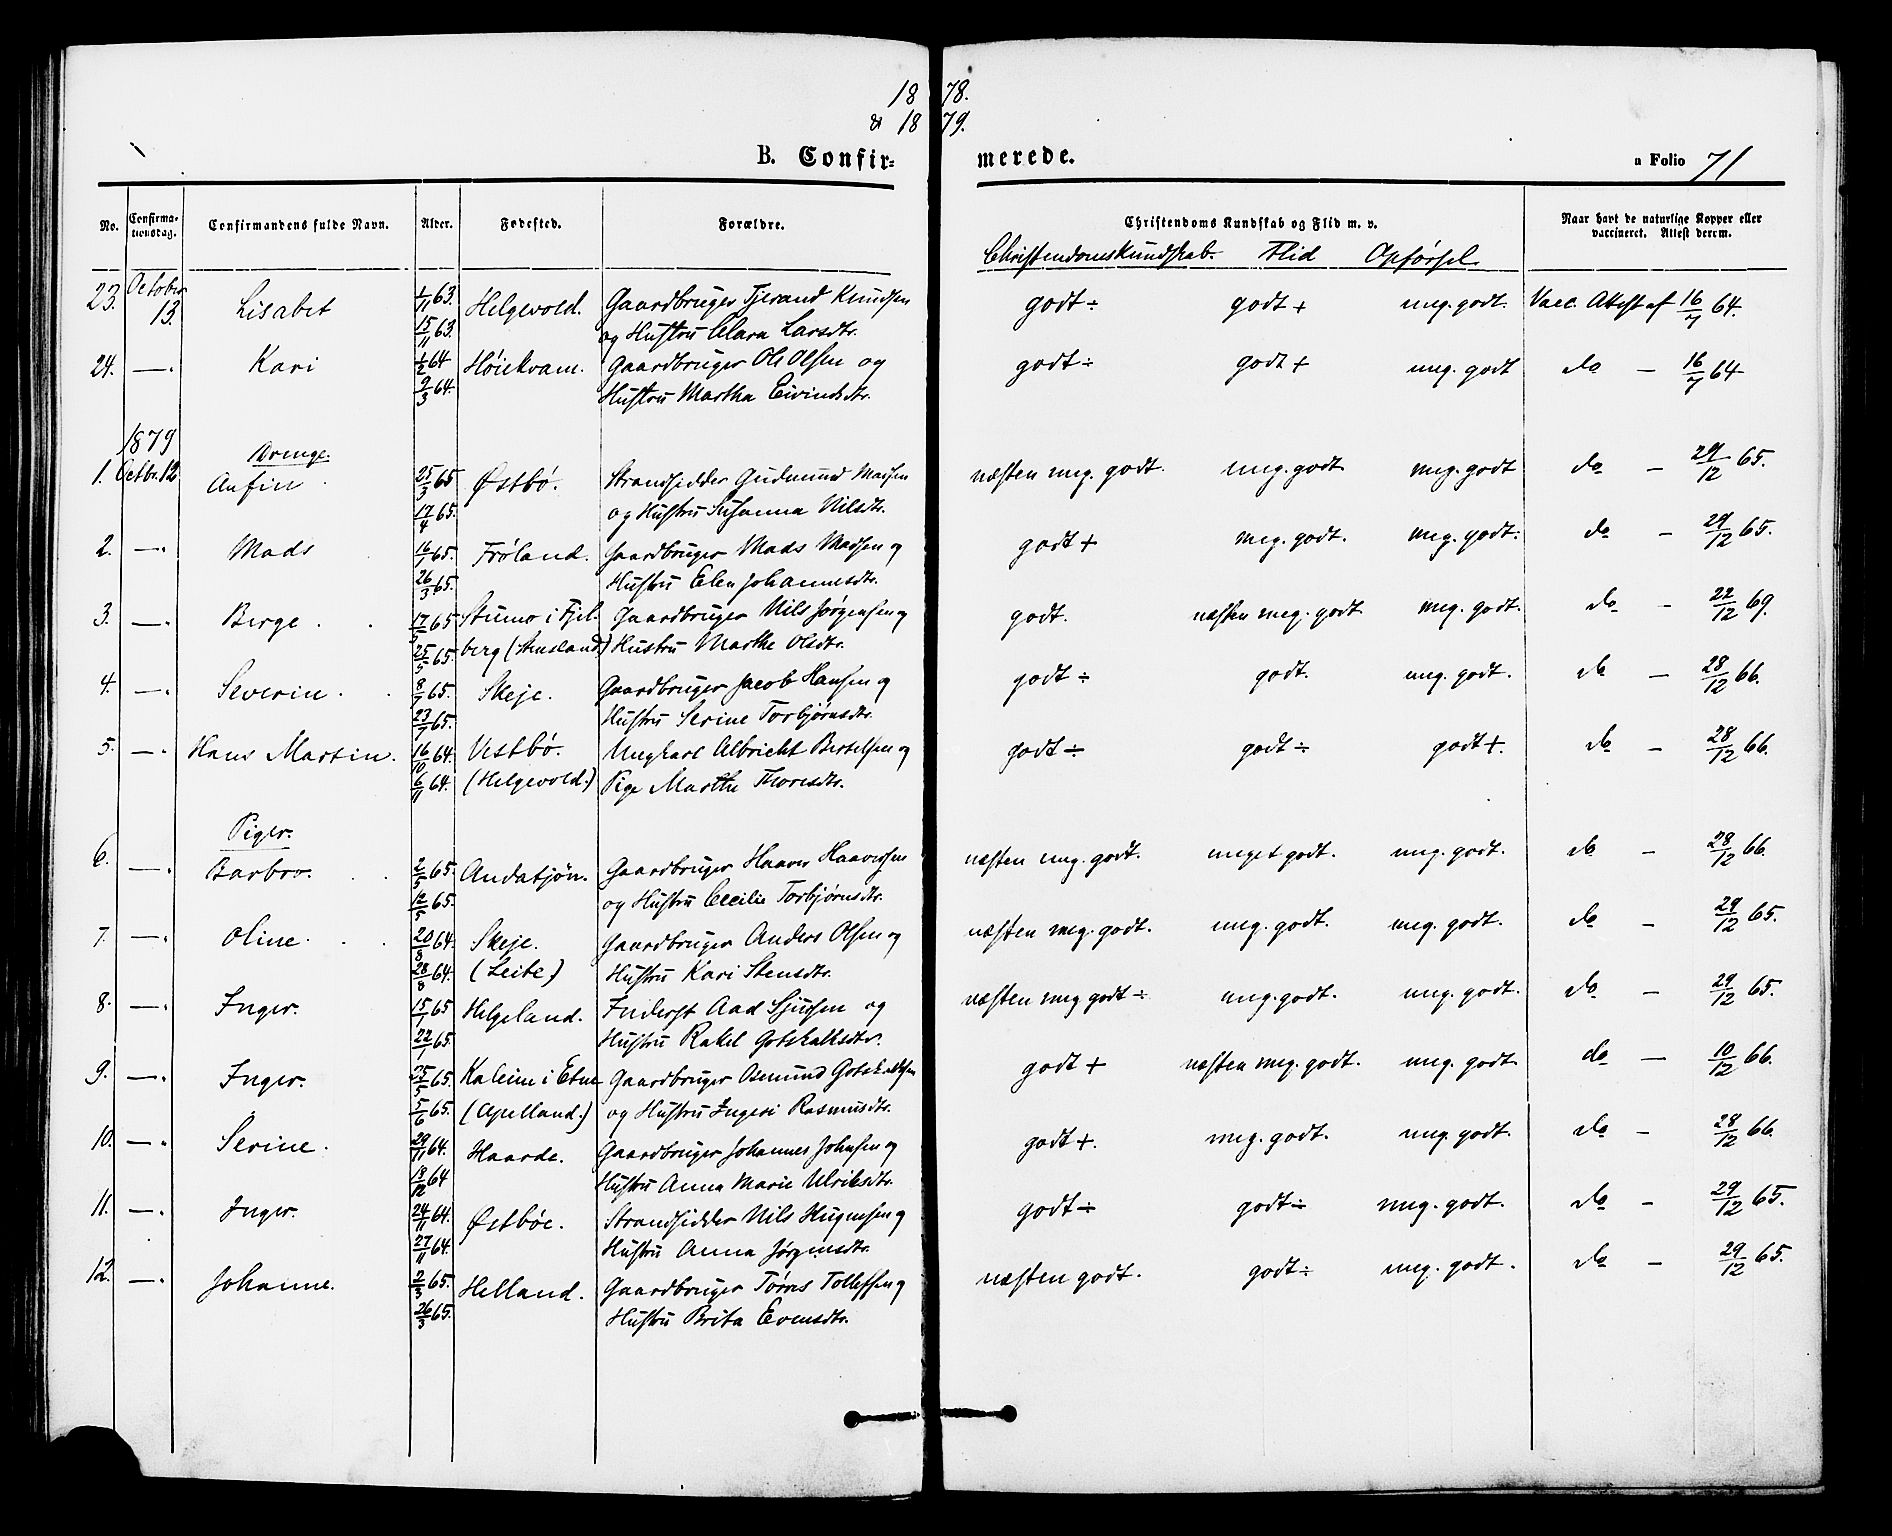 1878.
& 1879.
B. Confirmerede.
a Folio 71
No. Confirmationsdag. Confirmandens fulde Navn. Alder. Fødested. Forældre. Christendoms Kundskab og Flid m. v. Naar havt de naturlige Kopper eller vaccineret. Attest derom.
Christendomskundskab. Flid Opførsel.
23. October 13. Lisabet 1/11 63. Helgevold. Gaardbruger Tjerand Knudsen godt ÷ godt + meg. godt. Vacc. Attest af 16/7 64.
15/11 63. og Hustru Clara Larsdtr.
24. —. Kari 1/2 64 Høiekvam. Gaardbruger Ole Olsen og godt ÷ godt + meg. godt do — 16/7 64
2/3 64. Hustru Martha Eivindsdtr.
1879
Drenge.
1. Octbr. 12 Anfin 25/3 65 Østbö. Strandsidder Gudmund Madsen næsten meg. godt. meg. godt meg. godt do — 29/12 65.
17/4 65. og Hustru Susanna Nilsdtr.
2. —. Mads 16/1 65. Fröland. Gaardbruger Mads Madsen og godt + meg. godt. meg. godt. do — 29/12 65.
26/3 65. Hustru Elen Johannesdtr.
3. —. Berge. 17/5 65 Stumo i Fjel- Gaardbruger Nils Jørgensen og godt. næsten meg. godt meg. godt. do — 22/12 69.
25/5 65. berg (Stusland) Hustru Marthe Olsdtr.
4. —. Severin. 8/7 65. Skeje. Gaardbruger Jacob Hansen og godt ÷ godt. meg. godt. do — 28/12 66.
23/7 65. Hustru Serine Torbjørnsdtr.
5. —. Hans Martin. 16/10 64. Vestbö. Ungkarl Albricht Bertelsen og godt ÷ godt ÷ godt +. do — 28/12 66.
6/11 64. (Helgevold.) Pige Marthe Thoresdtr.
Piger.
6. —. Barbro. 2/5 65. Andatjön. Gaardbruger Haaver Haaversen næsten meg. godt. meget godt. meg. godt. do — 28/12 66.
12/5 65. og Hustru Cecilie Torbjørnsdtr.
7. —. Oline. 20/8 64. Skeje. Gaardbruger Anders Olsen og næsten meg. godt. meg. godt. meg. godt. do — 29/12 65.
28/8 64. (Leite) Hustru Kari Stensdtr.
8. —. Inger. 15/1 65 Helgeland. Inderst Aad Sjursen og næsten meg godt ÷ meg. godt. meg. godt. do — 29/12 65.
22/1 65. Hustru Rakel Gotskalksdtr.
9. —. Inger. 25/5 65. Kaleim i Etne Gaardbruger Osmund Gotskalksen godt + næsten meg. godt. meg. godt do — 10/12 66.
5/6 65. (Apelland.) og Hustru Ingeri Rasmusdtr.
10. —. Serine. 29/11 64. Haarde. Gaardbruger Johannes Johnsen og godt +. meg. godt. meg. godt. do — 28/12 66.
18/12 64 Hustru Anna Marie Ulriksdtr.
11. —. Inger. 24/11 64. Østböe. Strandsidder Nils Hugensen og godt ÷ godt ÷ meg. godt. do — 29/12 65.
27/11 64. Hustru Anna Jørgensdtr.
12. —. Johanne. 2/3 65. Helland. Gaardbruger Törres Tollefsen og næsten godt. godt ÷ meg. godt. do — 29/12 65.
26/3 65. Hustru Brita Evensdtr.